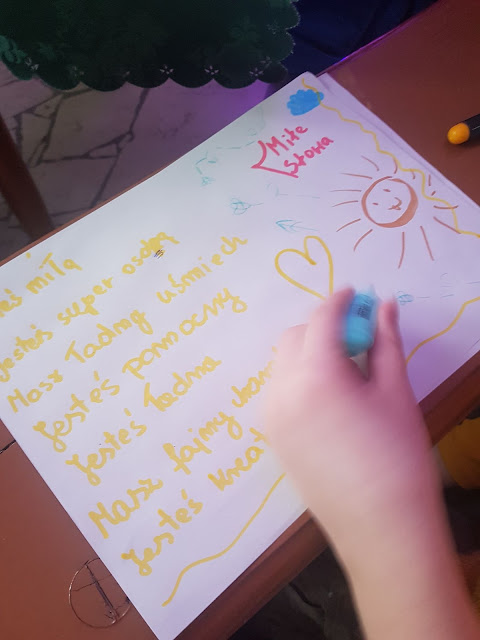 Miłe
słowa
eś miłą
Jesteś super osobą
Masz ładny uśmiech
Jesteś pomocny
Jesteś ładna
Masz fajny
Jesteś kreat